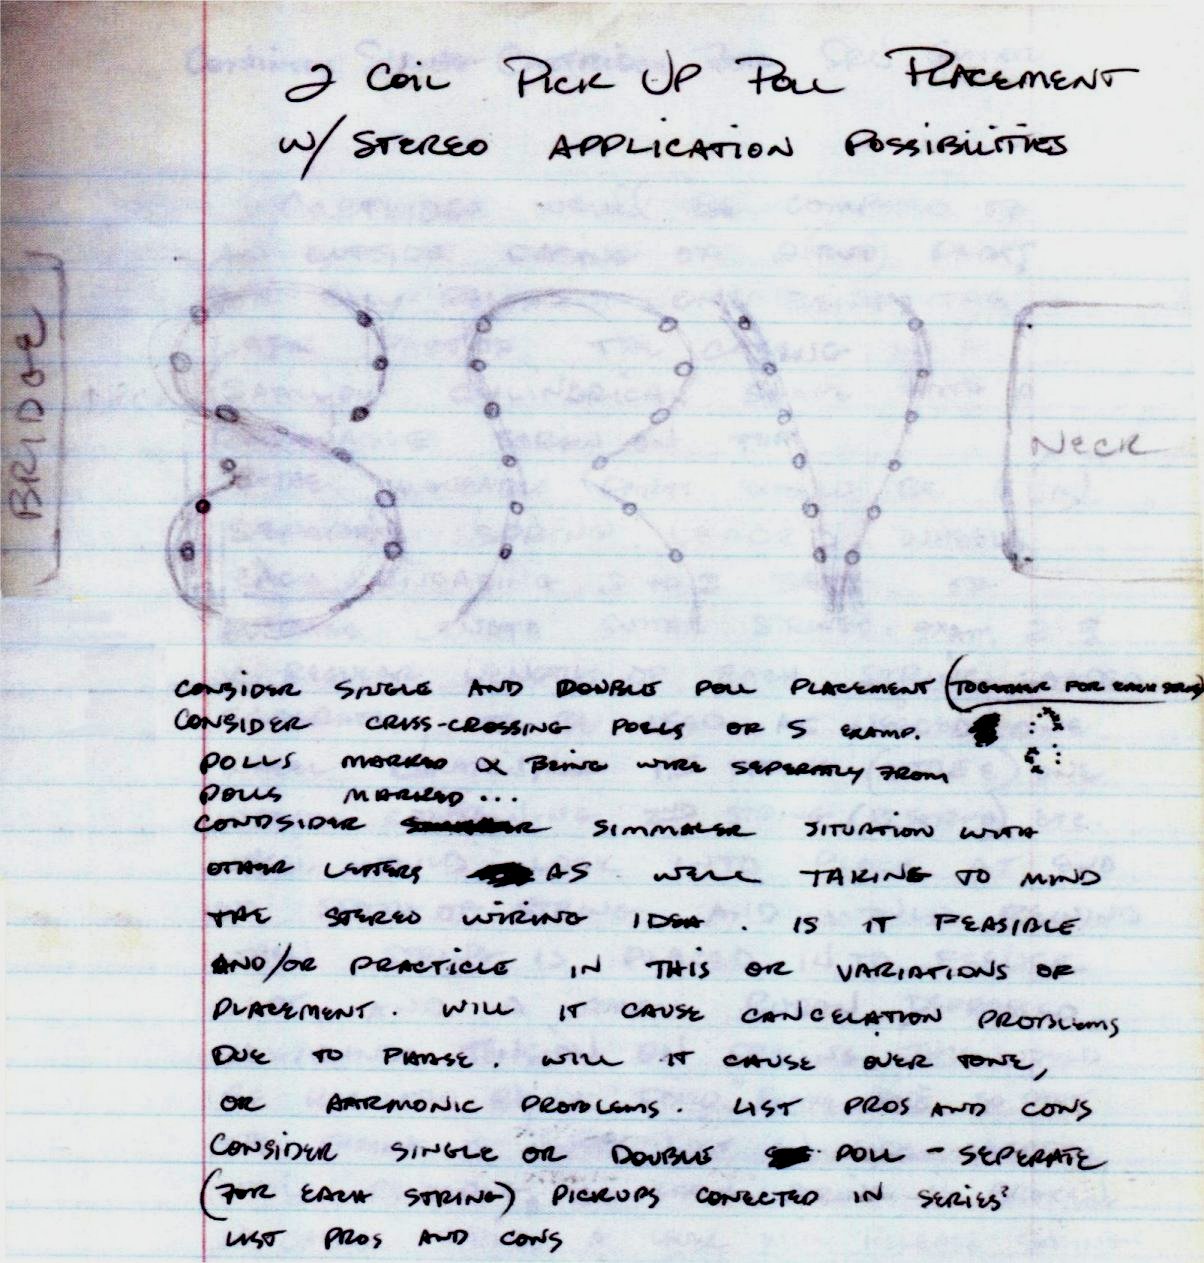 2 COIL PICK UP POLL PLACEMENT
W/ STEREO APPLICATION POSSIBILITIES
BRIDGE
SRV
NECK
CONSIDER SINGLE AND DOUBLE POLL PLACEMENT (TOGETHER FOR EACH STRING)
CONSIDER CRISS-CROSSING POLLS OR S EXAMP.
POLLS MARKED X BEING WIRE SEPERATLY FROM
POLLS MARKED...
CONDSIDER SIMMALER SITUATION WITH
OTHER LETTERS AS WELL TAKING TO MIND
THE STEREO WIRING IDEA. IS IT FEASIBLE
AND/OR PRACTICLE IN THIS OR VARIATIONS OF
PLACEMENT. WILL IT CAUSE CANCELATION PROBLEMS
DUE TO PHASE. WILL IT CAUSE OVER TONE,
OR HARMONIC PROBLEMS. LIST PROS AND CONS
CONSIDER SINGLE OR DOUBLE POLL - SEPERATE
(FOR EACH STRING) PICKUPS CONECTED IN SERIES?
LIST PROS AND CONS